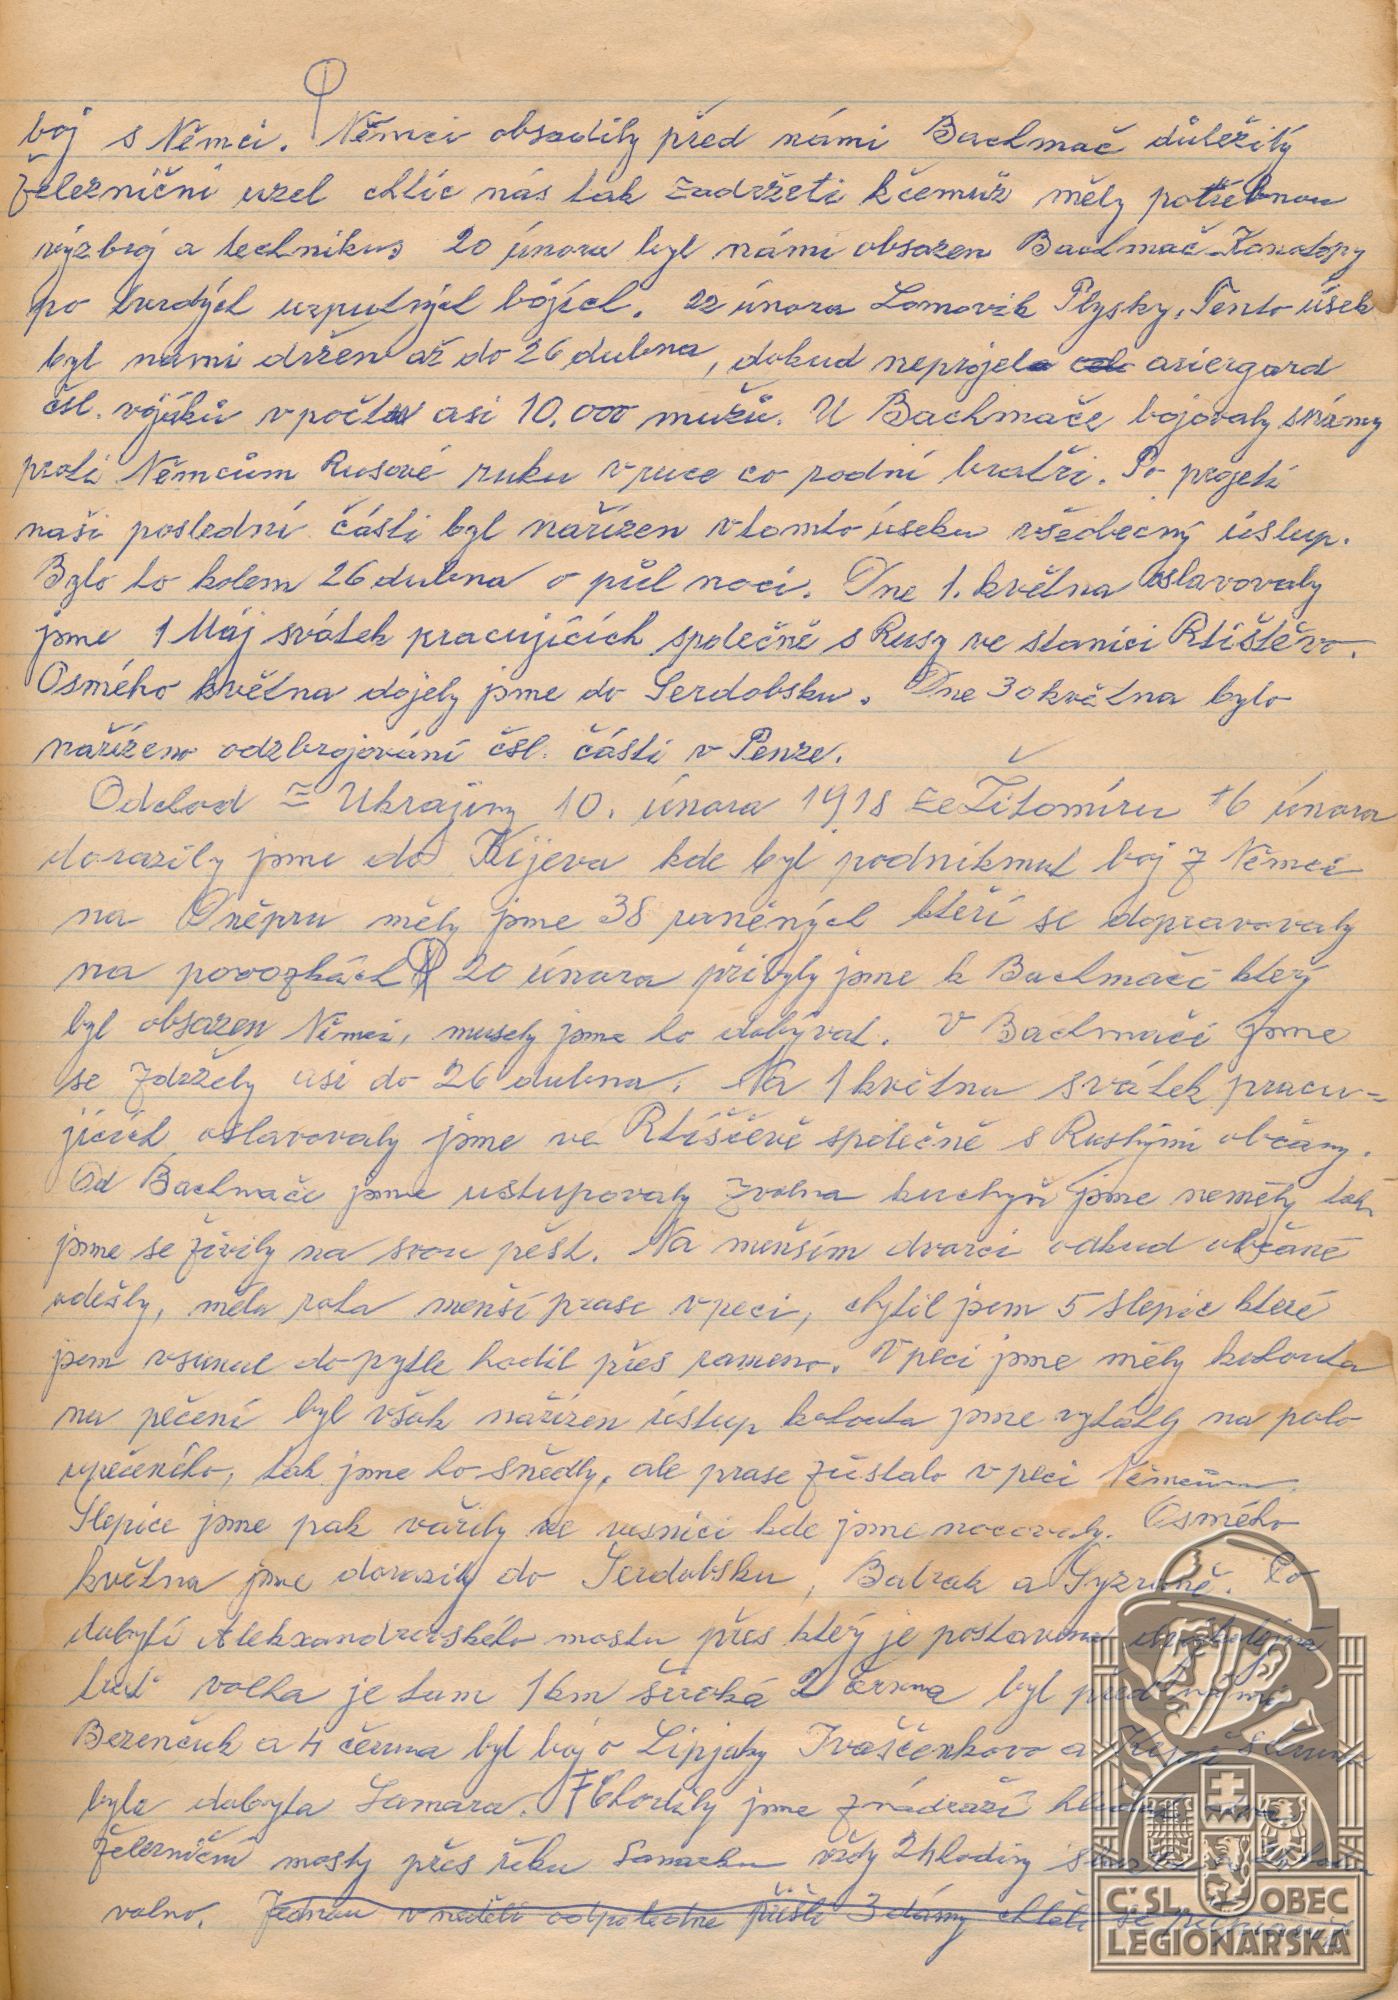 boj s Němci. Němci obsadily před námi Bachmač důležitý
železniční uzel chtíc nás tak zadržeti k čemuž měly potřebnou
výzbroj a techniku 20 února byl námi obsazen Bachmač-Konotopy
po tvrdých urputných bojích. 22 února Lomovik Plysky. Tento úsek
byl námi držen až do 26 dubna, dokud neprojela ariergard
čsl. vojáků v počtu asi 10.000 mužů. U Bachmače bojovaly s námy
proti Němcům Rusové ruku v ruce co rodní bratři. Po projetí
naší poslední části byl nařízen v tomto úseku všeobecný ústup.
Bylo to kolem 26 dubna o půl noci. Dne 1. května oslavovaly
jsme 1 Máj svátek pracujících společně s Rusy ve stanici Rtištěvo.
Osmého května dojely jsme do Serdobsku. Dne 30 května bylo
nařízeno odzbrojování čsl. části v Penze.
Odchod z Ukrajiny 10. února 1918 ze Žitomíru 16 února
dorazily jsme do Kijeva kde byl podniknut boj z Němci
na Dněpru měly jsme 38 raněných kteří se dopravovaly
na povozkách 20 února přibyly jsme k Bachmači který
byl obsazen Němci, musely jsme ho dobývat. V Bachmači jsme
se zdržely asi do 26 dubna. Na 1 května svátek pracu-
jících oslavovaly jsme ve Rtíščevě společně s Ruskými občany.
Od Bachmače jsme ustupovaly zvolna kuchyň jsme neměly tak
jsme se živily na svou pěst. Na menším dvorci odkud občané
odešly, měla rota menší prase v peci, chytil jsem 5 slepic které
jsem vsunul do pytle hodil přes rameno. V peci jsme měly kohouta
na pečení byl však nařízen ústup kohouta jsme vytáhly na polo
upečeného, tak jsme ho snědly, ale prase zůstalo v peci Němcům.
Slepice jsme pak vařily ve vesnici kde jsme nocovaly. Osmého
května jsme dorazily do Serdobsku, Batrak a Syzraně. Po
dobytí Alekxandrovského mostu přes který je postavena
trať volha je tam 1 km široká 2 června byl před námi
Bezenčuk a 4 června byl boj o Lipjaky Ivaščenkovo a
byla dobyta Samara. Chodily jsme z nádraží
železniční mosty přes řeku Samarku vždy 2 hodiny
volno. Jednou v neděli odpoledne přišli 3 dámy chtěli se
Č.SL. OBEC
LEGIONÁŘSKÁ